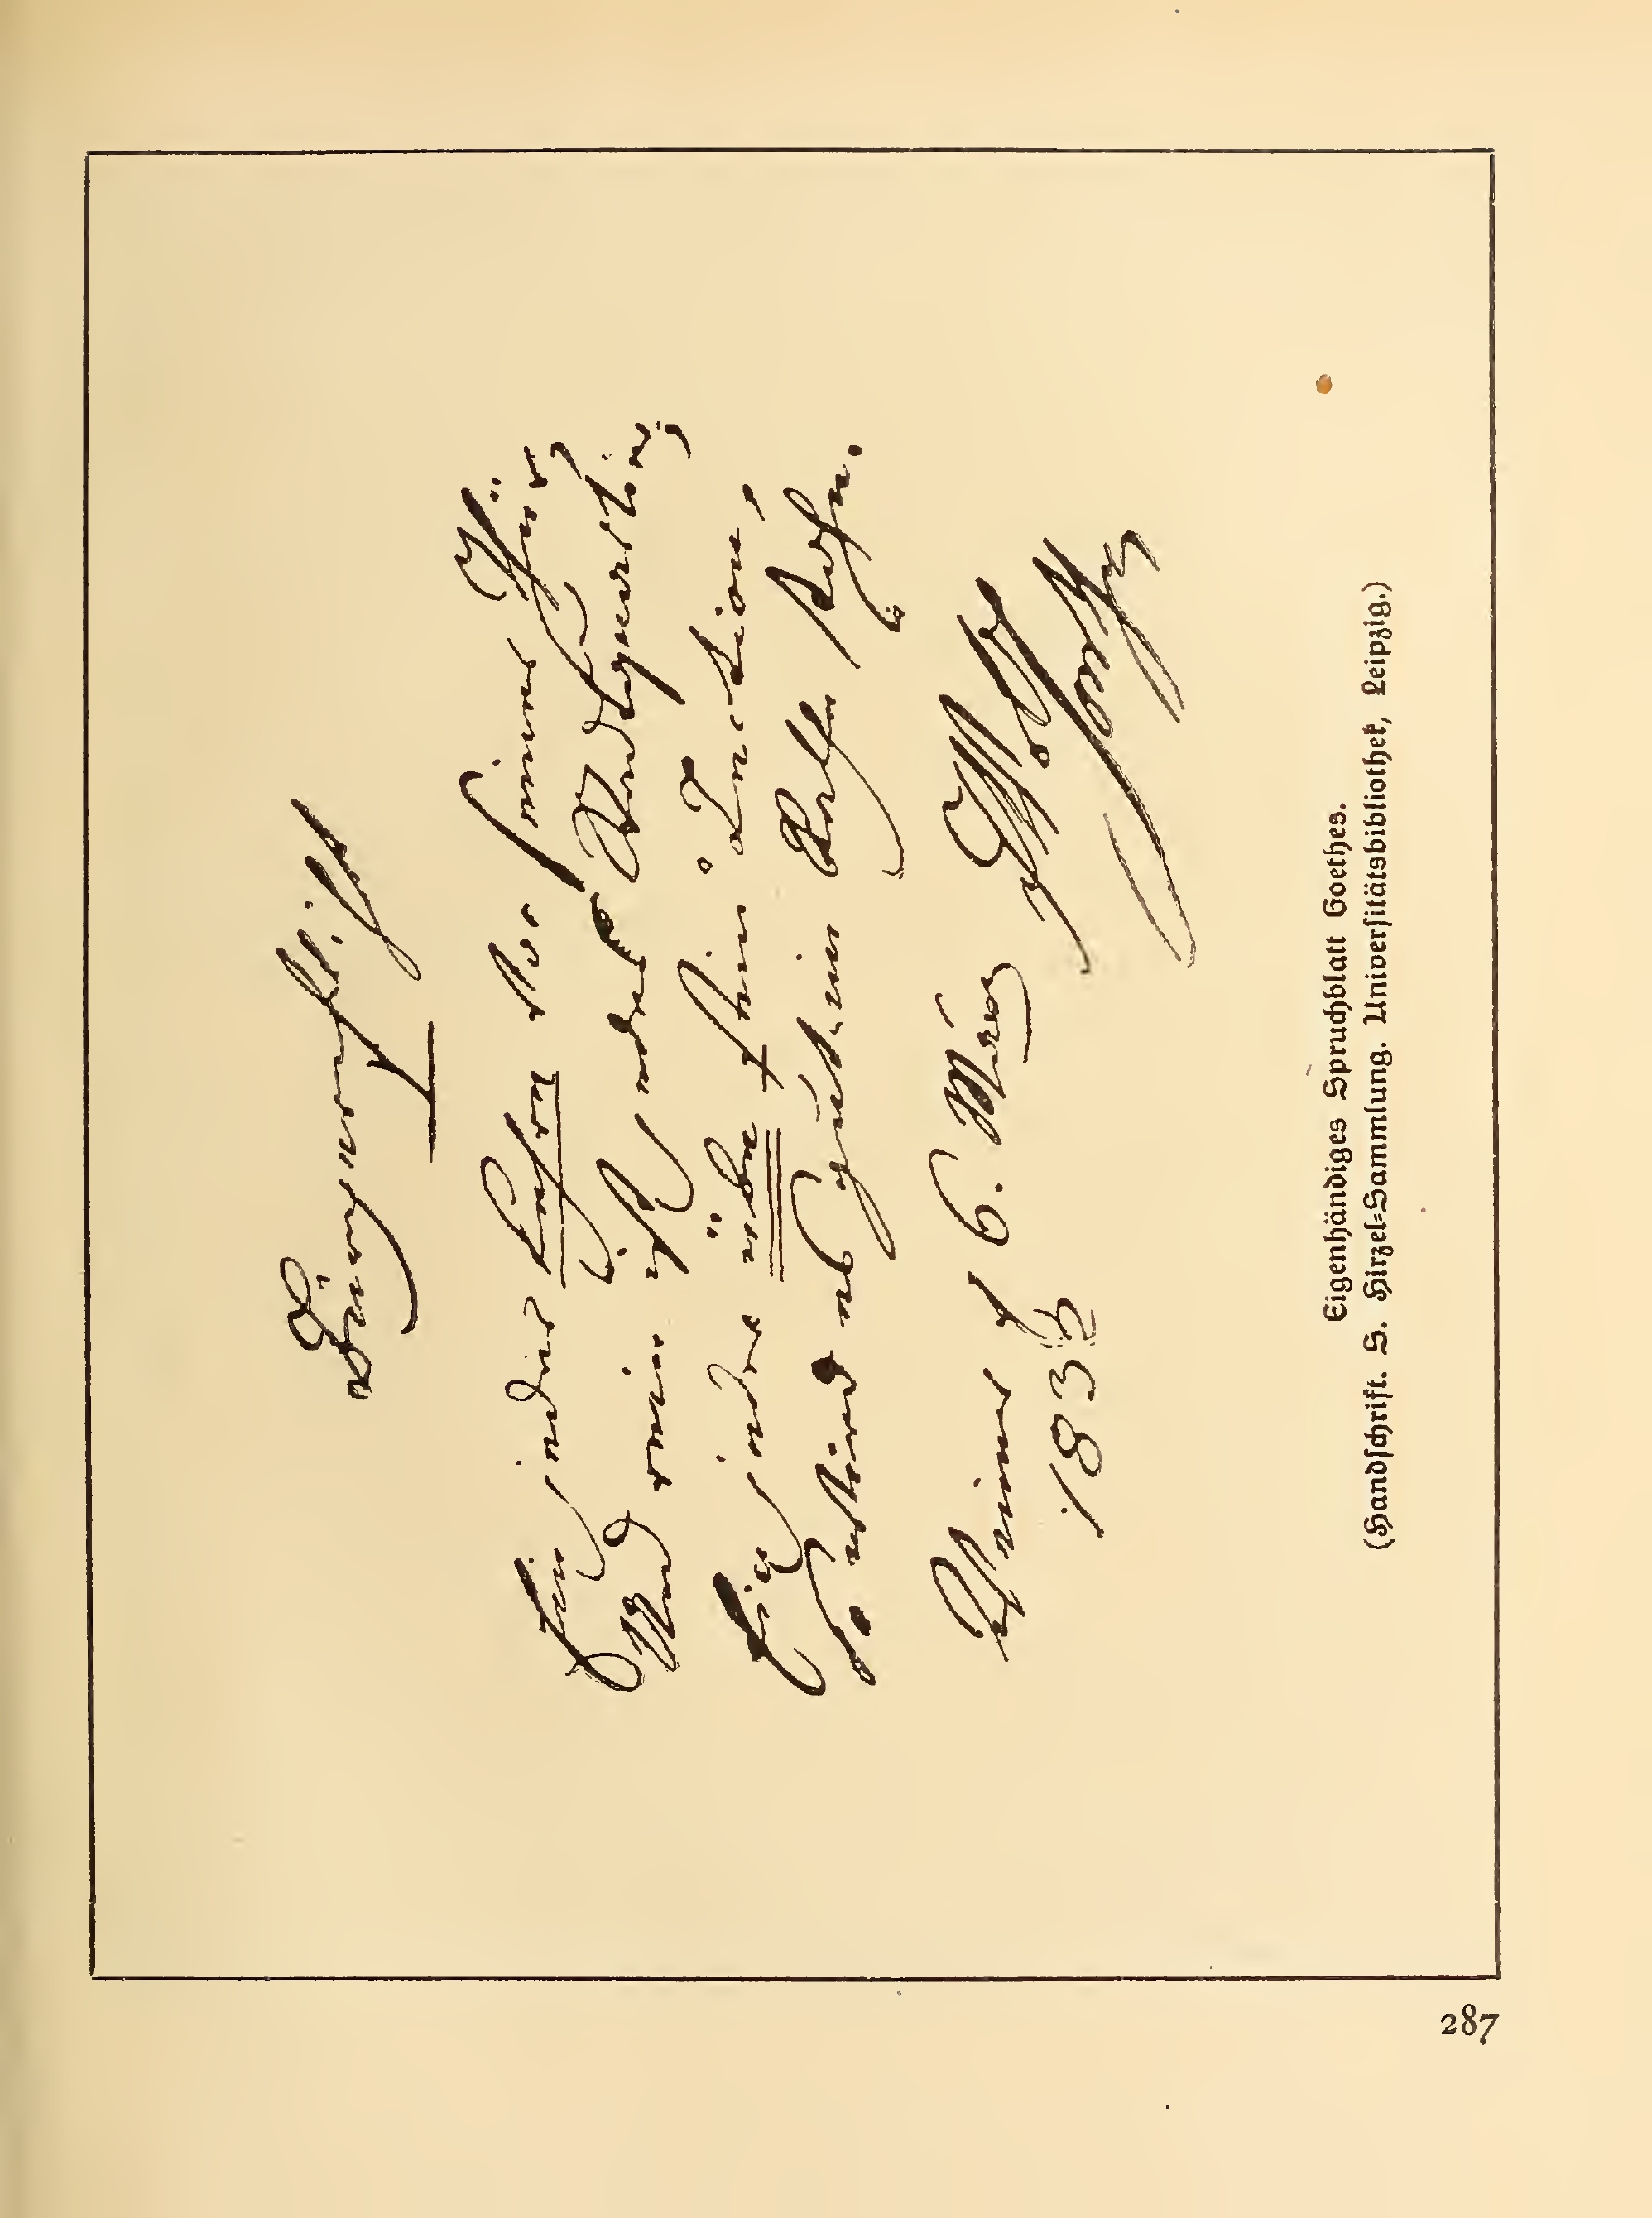 Bürgerpflicht
Ein jeder kehre vor seiner Thür,
Und rein ist jedes Stadtquartier;
Ein jeder übe sein' Lection,
So wird es gut im Rathe stehn.
Weimar d 6. März
1832
JWvGoethe
Eigenhändiges Spruchblatt Goethes.
(Handschrift. S. Hirzel-Sammlung. Universitätsbibliothek, Leipzig.)
287